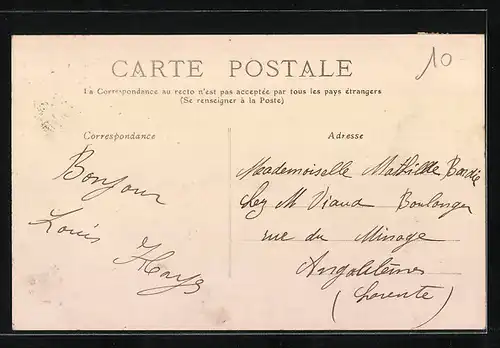 10
CARTE POSTALE
La Correspondance au recto n'est pas acceptée par tous les pays étrangers
(Se renseigner à la Poste)
Correspondance
Adresse
Bonjour
Louis
Mademoiselle Mathilde
chez M Viaud Boulanger
rue du Minage
(Charente)